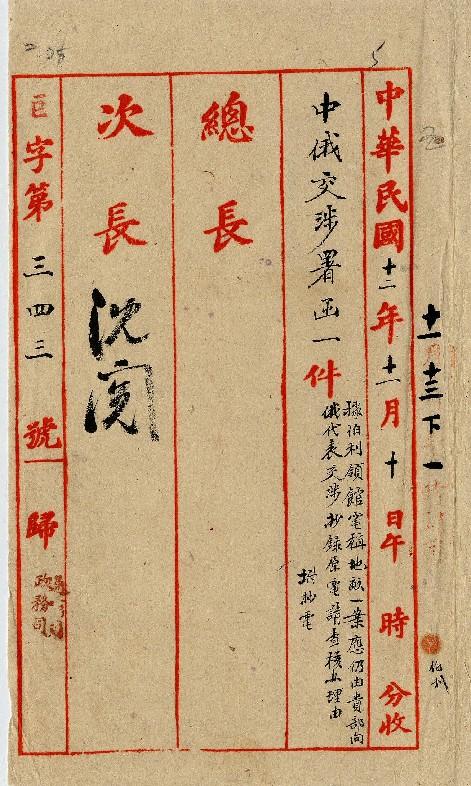 十一 十三 下 一
中華民國十二年十一月十日午 時 分收
中俄交涉署函一件
據伯利領館電稱地畝一業應仍由貴部向
俄代表交涉抄錄原電請查核辦理由
抄電
總長
次長
沈
巨字第三四三號歸
政務司
5